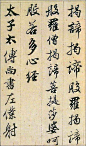 揭諦揭諦般羅揭諦
般羅僧揭諦菩提莎婆訶
般若多心經
太子太傅尚書左僕射